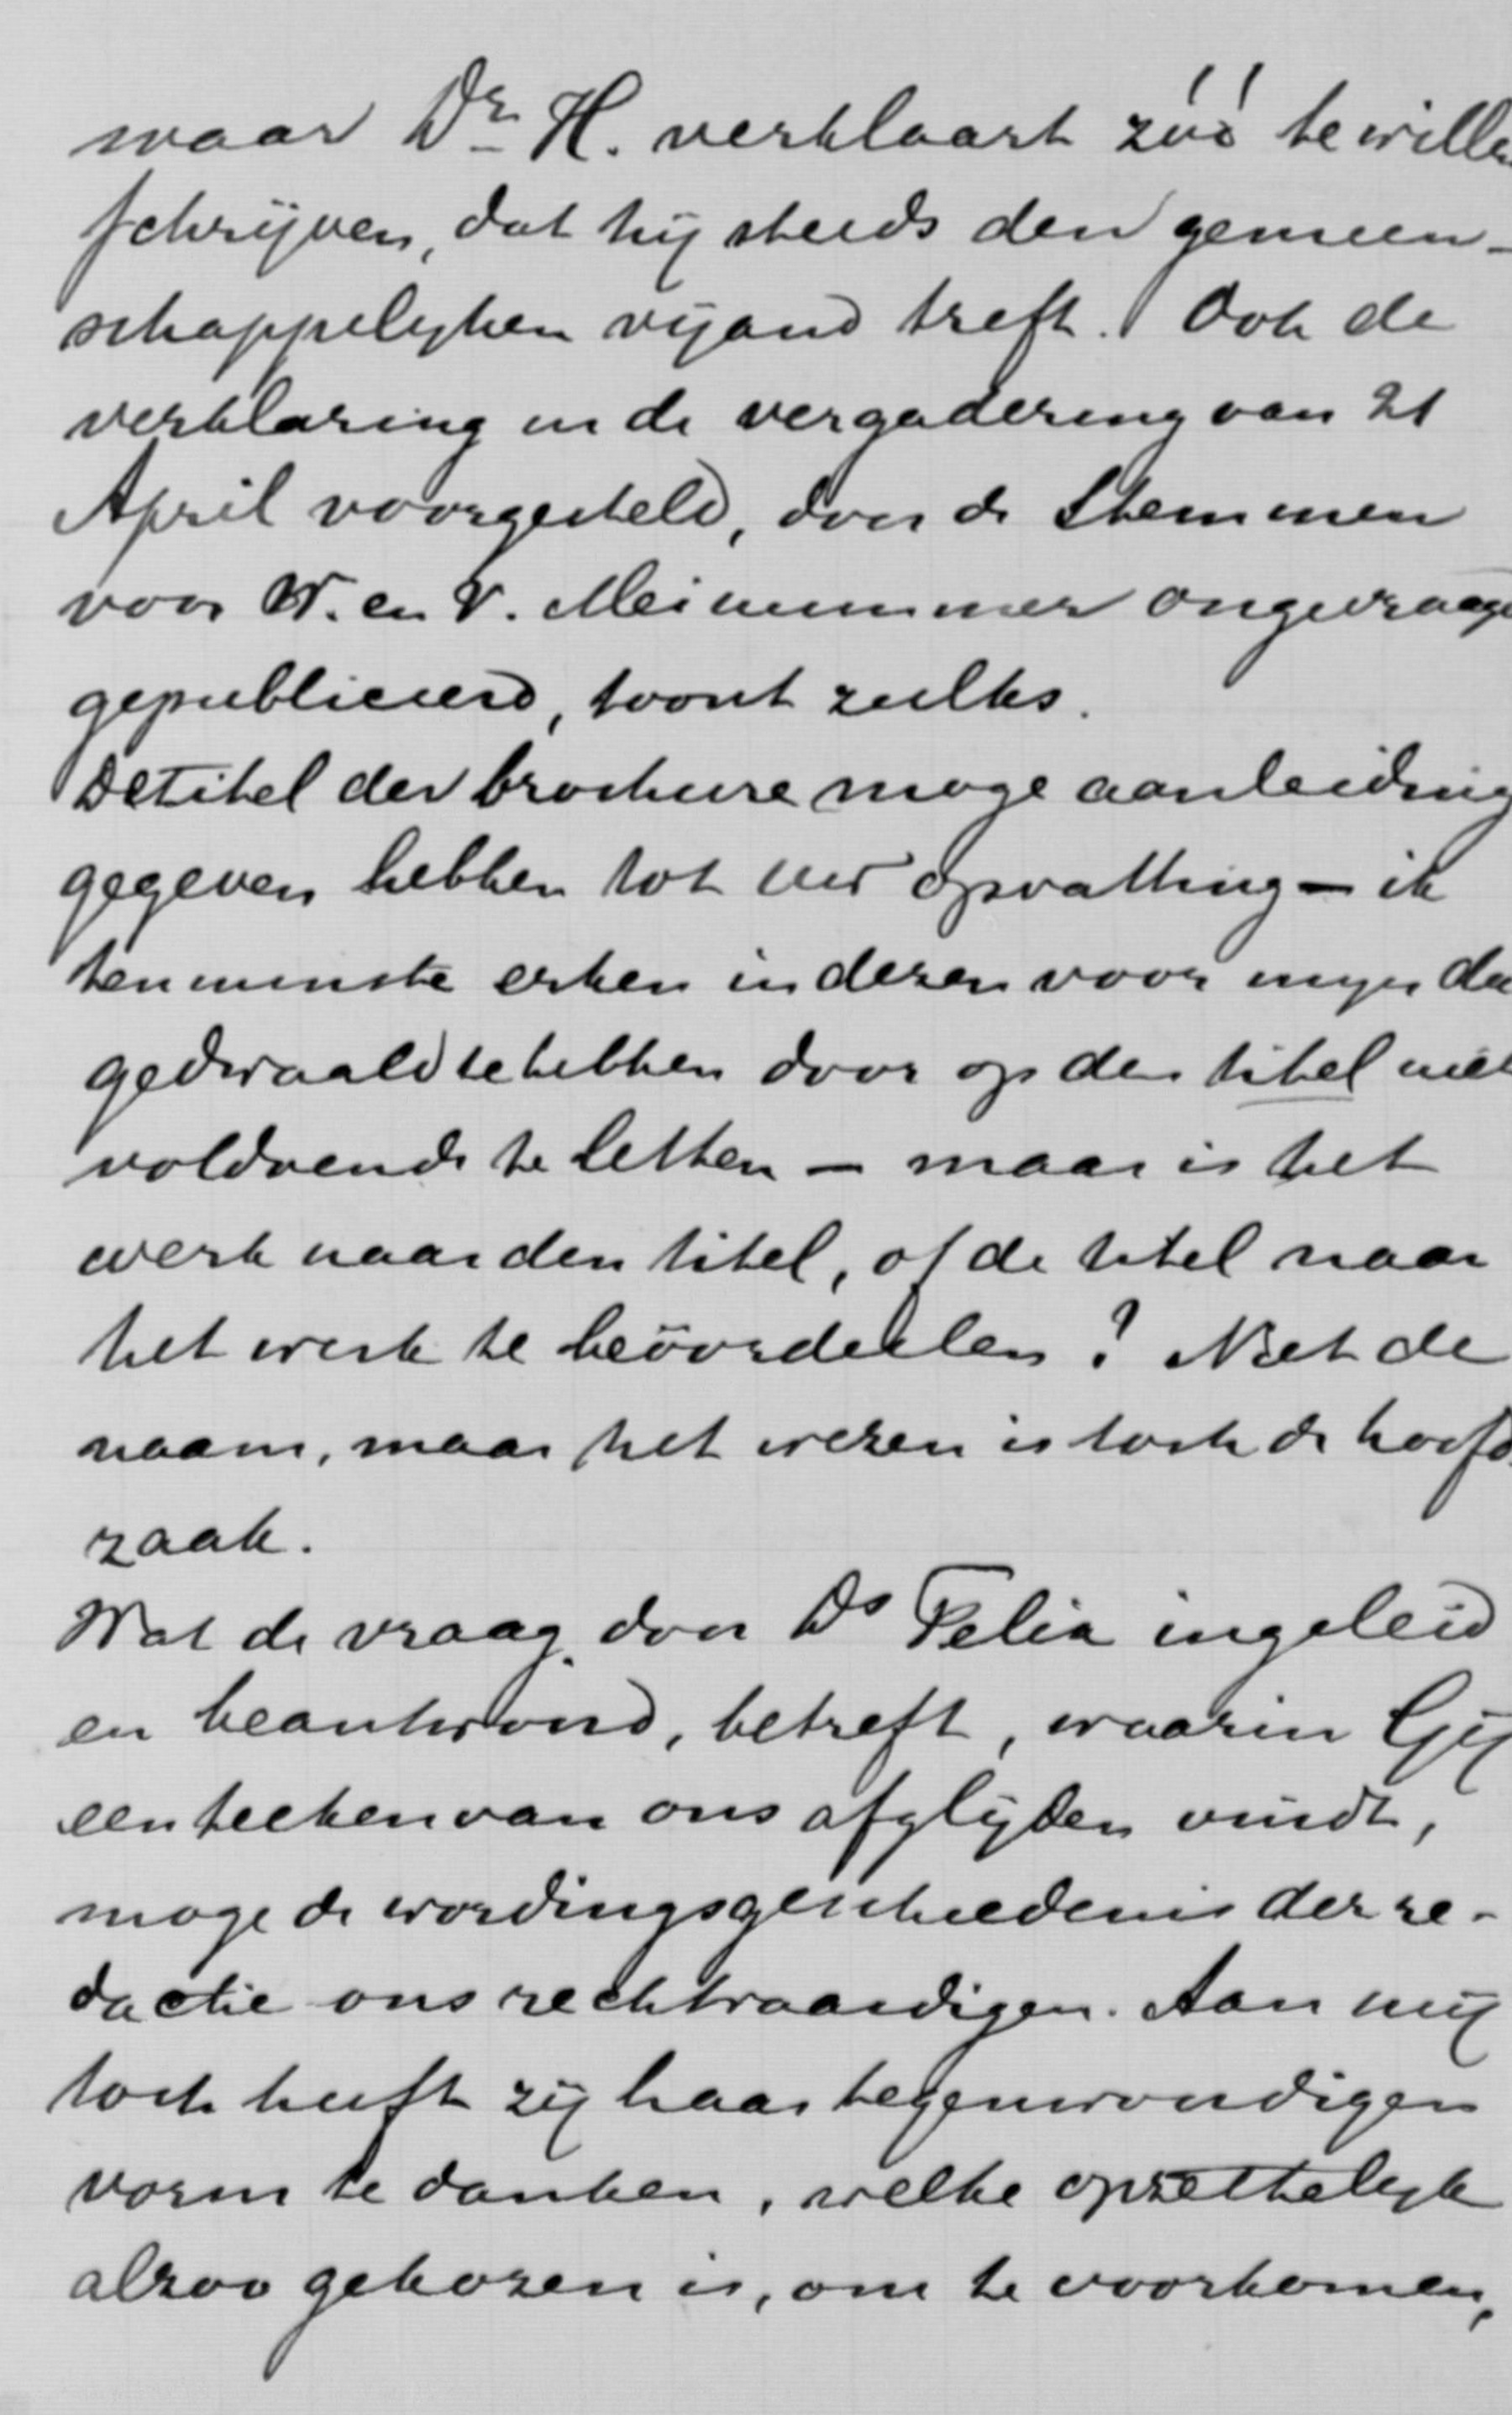 waar Dr. H. verklaart zóó te willen
schrijven, dat hij steeds den gemeen-
schappelijken vijand treft. Ook de
verklaring in de vergadering van 21
April voorgesteld, door de Stemmen
voor W. en V. Meinummer ongevraagd
gepubliceerd, toont zulks.
De titel der brochure moge aanleiding
gegeven hebben tot uw opvatting – ik
tenminste erken in dezen voor mijn deel
gedwaald te hebben door op den titel niet
voldoende te letten – maar is het
werk naar den titel, of de titel naar
het werk te beöordeelen? Niet de
naam, maar het wezen is toch de hoofd-
zaak.
Wat de vraag door Ds Felix ingeleid
en beantwoord, betreft, waarin Gij
een teeken van ons afglijden vindt,
moge de wordingsgeschiedenis der re-
dactie ons rechtvaardigen. Aan mij
toch heeft zij haar tegenwoordigen
vorm te danken, welke opzettelijk
alzoo gekozen is, om te voorkomen,